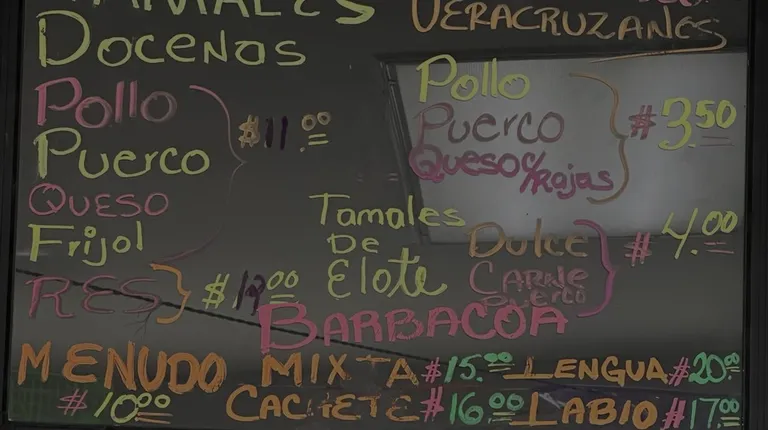 TAMALES
VERACRUZANES
DOCENAS
Pollo
Puerco
Queso
Frijol
$11.00
RES
Pollo
Puerco
Queso c/Rajas
$3.50
Tamales
De
Elote
Dulce
Carne
Puerco
$4.00
BARBACOA
MENUDO
$10.00
MIXTA $15.00 LENGUA $20.00
CACHETE $16.00 LABIO $17.00